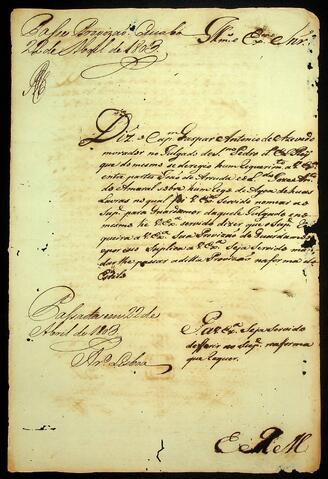 Passe Provizão Cuiabá
22 de Abril de 1803.
Illmo. e Exmo. Snr.
Diz o Capm. Gaspar Antonio de Azevedo
morador no Julgado de S. Pedro d'El Rey
que do mesmo se derigio hum Requerimto. a VExa.
entre partes de Arruda e Je.
do Amaral sobre hum Rego de Agoa de humas
Lavras no qual por VExa. Servido nomear ao
Supe. para Guardamor daquele Julgado e no
mesmo he VExa. servido dizer que o Supe. re
queira a VExa. Sua Provizão de Guardamor
por isso Suplica a VExa. Seja Servido man
dar lhe passar a ditta Provizão na forma do
Estilo
Passada em 22 de
Abril de 1803
Lisboa
Pa. VExa. Seja Servido
defferir ao Supe. na forma
que Requer.
E R M